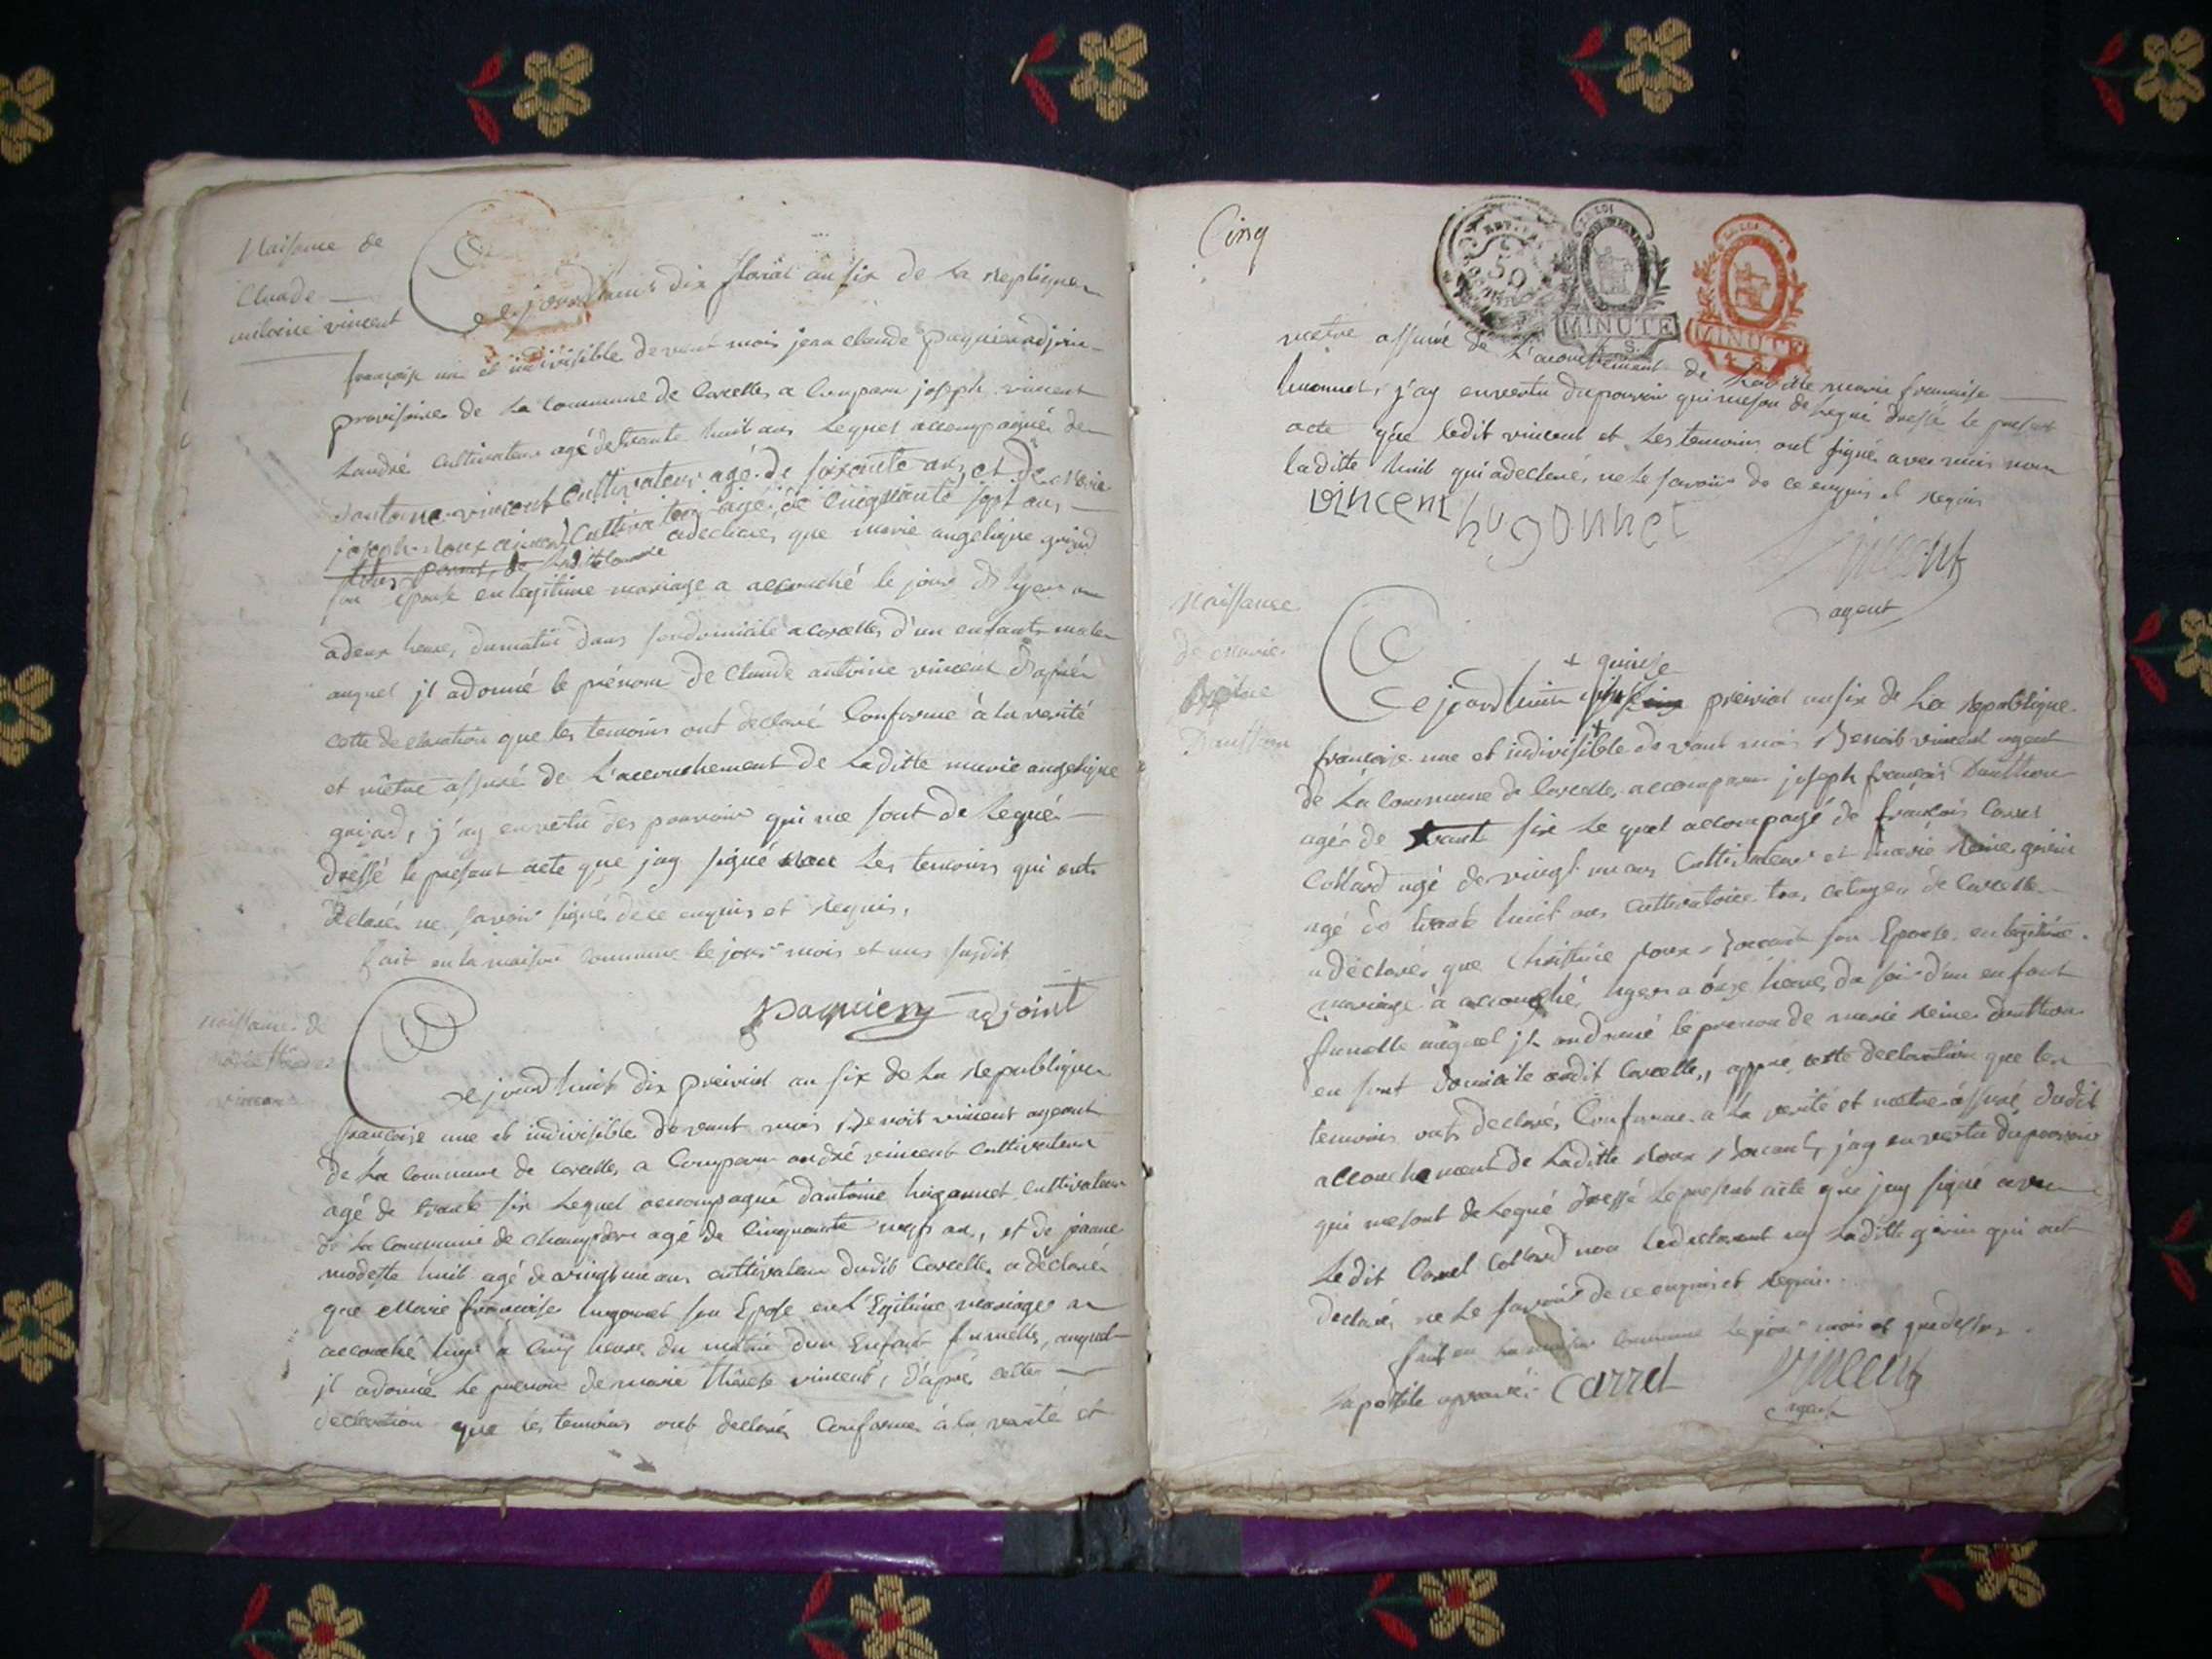 Naissance de
Claude
antoine vincent
Ce jourdhuit dix floréal an six de la republique
françoise une et indivisible devant mois jean claude paquien adjoin
provisoire de la Commune de Corcelles a Comparu joseph vincent
Landré Cultivateur agé de trante huit ans Lequel accompagnié de
dantoine vincent Cultivateur agé de soixante ans et De
joseph Roux Cultivateur agé de Cinquante sept ans
adeclaré que marie angelique guijard
son epouse en legitime mariage a accouché le jour D'hyer
a deux heures dumatin dans sondomicile a corcelles d'un enfant male
auquel jl adonné le prénom de Claude antoine vincent D'aprés
cette declaration que les temoins ont declaré Conforme à la verité
et mêtre assuré de L'accouchement de Laditte marie angelique
guijard, j'ay en vertu des pouvoirs qui me sont de Legué
dressé le présent acte que jay signé non Les temoins qui ont
declaré ne savoir signé de ce enquis et Requis,
fait en la maison Commune le jour mois et ans susdit
paquien adjoint
naissance de
marie therese
vincent
Ce jourdhuit dix preirial an six de La Republique
françoise une et indivisible devant mois Benoit vincent agent
de La Commune de Corcelles a Comparu andré vincent Cultivateur
agé de trante six Lequel accompagné dantoine hugonnet cultivateur
de La Commune de Champdor agé de Cinquante neuf an, et de jeanne
modeste huit agé de vingt un ans cultivateur dudit Corcelles a declaré
que Marie françoise hugonet son Epose en L'Egitime mariage a
accouché hiye a Cinq heures du matin dun Enfant fumelle, auquel
jl adonné Le prenom de marie thérese vincent, d'aprés cette
declaration que les temoins ont declaré Conforme à la verité et
Cinq
50
MINUTE
MINUTE
metre assuré de L'acouchement de Laditte marie francoise
huonnet, j'ay en vertu du pouvoir qui me son de Legué dressé le present
acte que ledit vincent et Les temoins ont signé avec mois non
laditte huit qui adeclaré ne Le savoir de ce enquis et requis
vincent hugonnet
vincent
agent
Naissance
de marie
Reine
Danthon
+ quinse
Ce jourdhuit preirial an six de La Republique
françoise une et indivisible de vant mois Benoit vincent agent
de La Commune de Corcelles accomparu joseph françois Danthon
agé de trante six Le quel accompagé de françois Carret
Collard agé de vingt un ans Cultivateur et marie Reine guirin
agé de trante huit ans cultivatoire tous citoyen de Corcelle
a déclaré que Christine Roux son Epouse en legitime
mariage a accouché hyer a onse heures du soir d'un enfant
fumelle auquel jl andonné le prenom de marie Reine danthon
en sont domicile audit Corcelles, apprés cette declaration que les
temoins onts declaré Conforme a La verité et metre assuré dudit
accouchement de Laditte Roux jay en vertu du pouvoir
qui me sont de Legué dressé Le present acte que jay signé avec
Ledit Carret Collard non Ledeclarant ny Laditte guirin qui ont
declaré ne Le savoir de ce enquis et Requis.
fait en La maison Commune Le jour mois et que dessus.
La postile aprouvé. Carret vincent
agent